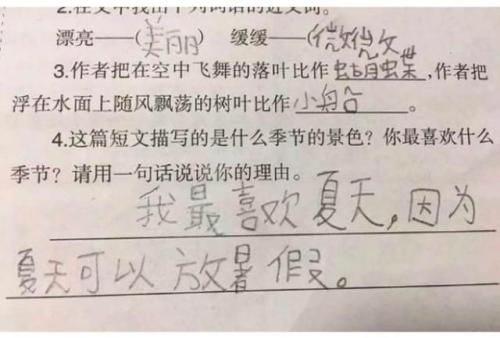 2.在文中找出下列词语的近义词。
漂亮——(美丽) 缓缓——(微微)
3.作者把在空中飞舞的落叶比作蝴蝶,作者把
浮在水面上随风飘荡的树叶比作小船。
4.这篇短文描写的是什么季节的景色？你最喜欢什么
季节？请用一句话说说你的理由。
我最喜欢夏天,因为
夏天可以放暑假。